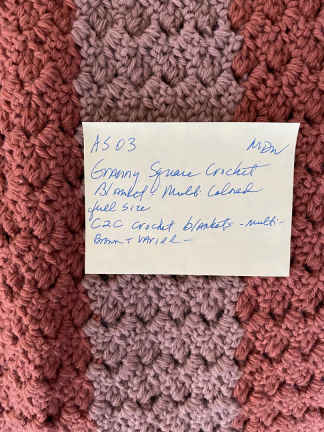 AS03 MEN
Granny Square Crochet
Blanket - Multi Colored
full size
C2C Crochet blankets - multi -
Brown + Varied -